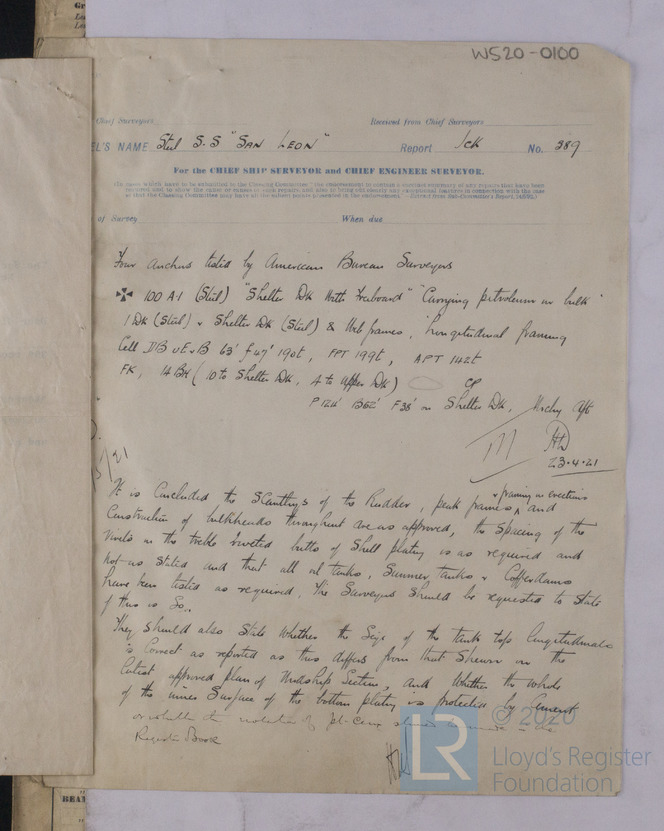 WS20-0100
Chief Surveyors Received from Chief Surveyors
EL'S NAME Steel S.S "SAN LEON" Report Jck No. 289
For the CHIEF SHIP SURVEYOR and CHIEF ENGINEER SURVEYOR.
of Survey When due
Four anchors tested by American Bureau Surveyors
✠ 100 A·1 (Steel) "Shelter Dk With Freeboard" "Carrying petroleum in bulk"
1 Dk (Steel) & Shelter Dk (Steel) & Web frames, Longitudinal framing
Cell DB 63' f 47' 190t, FPT 199t, APT 142t
FK, 14 BH (10 to Shelter Dk, 4 to Upper Dk) CP
P 124' B62' F38' on Shelter Dk, Mchy Aft
23·4·21
5/21
& framing in erections
It is concluded the scantlings of the Rudder, peak frames ∧ and
Construction of bulkheads throughout are as approved, the spacing of the
rivets in the treble riveted butts of shell plating is as required and
not as stated and that all oil tanks, Summer tanks & Cofferdams
have been tested as required. The Surveyors should be requested to state
if this is so.
They should also state whether the size of the tank top longitudinals
is correct as reported as this differs from that shewn on the
latest approved plan of Midship Section, and whether the whole
of the inner surface of the bottom plating is protected by cement
or whether the notation of pt. cem in the
Register Book
BEA
© 2020
LR
Lloyd's Register
Foundation